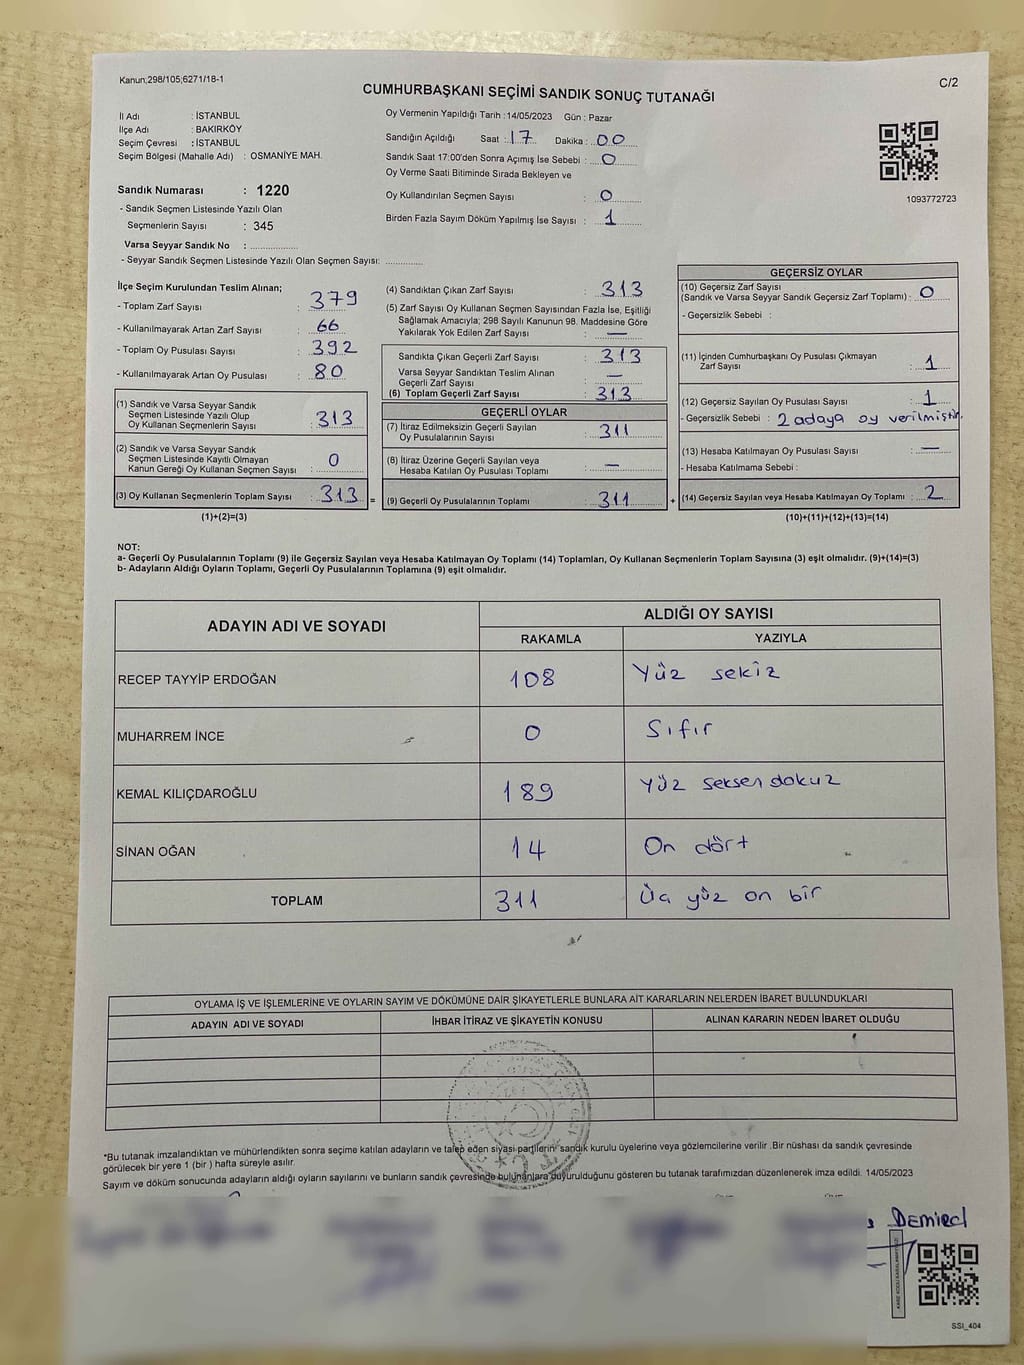 Kanun;298/105;6271/18-1
C/2
CUMHURBAŞKANI SEÇİMİ SANDIK SONUÇ TUTANAĞI
İl Adı : İSTANBUL
İlçe Adı : BAKIRKÖY
Seçim Çevresi : İSTANBUL
Seçim Bölgesi (Mahalle Adı) : OSMANİYE MAH.
Sandık Numarası : 1220
- Sandık Seçmen Listesinde Yazılı Olan
Seçmenlerin Sayısı : 345
Varsa Seyyar Sandık No : ................
- Seyyar Sandık Seçmen Listesinde Yazılı Olan Seçmen Sayısı: .............
Oy Vermenin Yapıldığı Tarih :14/05/2023 Gün : Pazar
Sandığın Açıldığı Saat : 17 Dakika : 00
Sandık Saat 17:00'den Sonra Açımış İse Sebebi : 0
Oy Verme Saati Bitiminde Sırada Bekleyen ve
Oy Kullandırılan Seçmen Sayısı : 0
Birden Fazla Sayım Döküm Yapılmış İse Sayısı : 1
1093772723
İlçe Seçim Kurulundan Teslim Alınan;
- Toplam Zarf Sayısı : 379
- Kullanılmayarak Artan Zarf Sayısı : 66
- Toplam Oy Pusulası Sayısı : 392
- Kullanılmayarak Artan Oy Pusulası : 80
(1) Sandık ve Varsa Seyyar Sandık
Seçmen Listesinde Yazılı Olup
Oy Kullanan Seçmenlerin Sayısı : 313
(2) Sandık ve Varsa Seyyar Sandık
Seçmen Listesinde Kayıtlı Olmayan
Kanun Gereği Oy Kullanan Seçmen Sayısı : 0
(3) Oy Kullanan Seçmenlerin Toplam Sayısı : 313 =
(1)+(2)=(3)
(4) Sandıktan Çıkan Zarf Sayısı : 313
(5) Zarf Sayısı Oy Kullanan Seçmen Sayısından Fazla İse, Eşitliği
Sağlamak Amacıyla; 298 Sayılı Kanunun 98. Maddesine Göre
Yakılarak Yok Edilen Zarf Sayısı : —
Sandıkta Çıkan Geçerli Zarf Sayısı : 313
Varsa Sandıktan Teslim Alınan
Geçerli Zarf Sayısı : —
(6) Toplam Geçerli Zarf Sayısı : 313
GEÇERLİ OYLAR
(7) İtiraz Edilmeksizin Geçerli Sayılan
Oy Pusulalarının Sayısı : 311
(8) İtiraz Üzerine Geçerli Sayılan veya
Hesaba Katılan Oy Pusulası Toplamı : —
(9) Geçerli Oy Pusulalarının Toplamı : 311 +
GEÇERSİZ OYLAR
(10) Geçersiz Zarf Sayısı
(Sandık ve Varsa Seyyar Sandık Geçersiz Zarf Toplamı) : 0
- Geçersizlik Sebebi :
(11) İçinden Cumhurbaşkanı Oy Pusulası Çıkmayan
Zarf Sayısı : 1
(12) Geçersiz Sayılan Oy Pusulası Sayısı : 1
- Geçersizlik Sebebi : 2 adaya oy verilmiştir.
(13) Hesaba Katılmayan Oy Pusulası Sayısı : —
- Hesaba Katılmama Sebebi :
(14) Geçersiz Sayılan veya Hesaba Katılmayan Oy Toplamı : 2
(10)+(11)+(12)+(13)=(14)
NOT:
a- Geçerli Oy Pusulalarının Toplamı (9) ile Geçersiz Sayılan veya Hesaba Katılmayan Oy Toplamı (14) Toplamları, Oy Kullanan Seçmenlerin Toplam Sayısına (3) eşit olmalıdır. (9)+(14)=(3)
b- Adayların Aldığı Oyların Toplamı, Geçerli Oy Pusulalarının Toplamına (9) eşit olmalıdır.
ADAYIN ADI VE SOYADI
ALDIĞI OY SAYISI
RAKAMLA YAZIYLA
RECEP TAYYİP ERDOĞAN 108 Yüz sekiz
MUHARREM İNCE 0 Sıfır
KEMAL KILIÇDAROĞLU 189 Yüz seksen dokuz
SİNAN OĞAN 14 On dört
TOPLAM 311 Üç yüz on bir
OYLAMA İŞ VE İŞLEMLERİNE VE OYLARIN SAYIM VE DÖKÜMÜNE DAİR ŞİKAYETLERLE BUNLARA AİT KARARLARIN NELERDEN İBARET BULUNDUKLARI
ADAYIN ADI VE SOYADI İHBAR İTİRAZ VE ŞİKAYETİN KONUSU ALINAN KARARIN NEDEN İBARET OLDUĞU
*Bu tutanak imzalandıktan ve mühürlendikten sonra seçime katılan adayların ve talep eden siyasi partilerin sandık kurulu üyelerine veya gözlemcilerine verilir .Bir nüshası da sandık çevresinde
görülecek bir yere 1 (bir ) hafta süreyle asılır.
Sayım ve döküm sonucunda adayların aldığı oyların sayılarını ve bunların sandık çevresinde bulunanlara duyurulduğunu gösteren bu tutanak tarafımızdan düzenlenerek imza edildi. 14/05/2023
Demirel
SSI_404